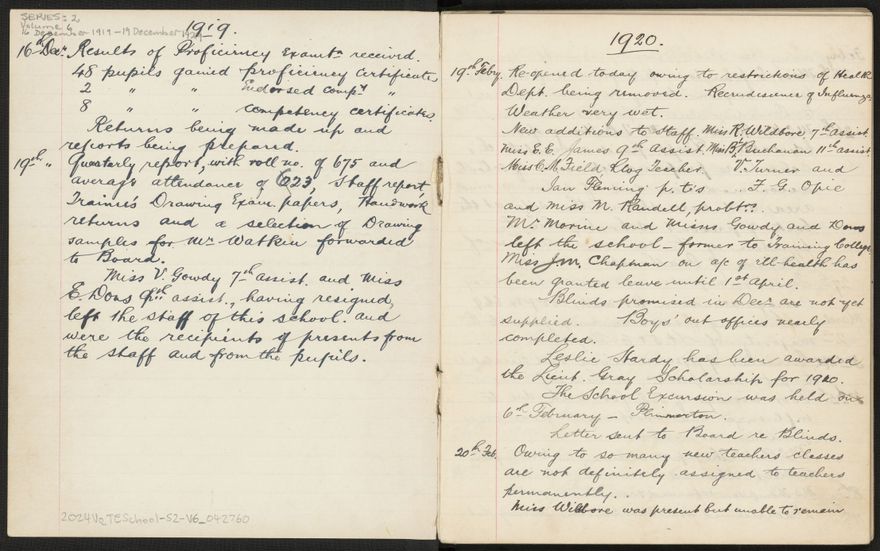 SERIES: 2
Volume 6
16 December 1919 - 19 December 1929
1919.
16th Decr. Results of Proficiency Examtn received.
48 pupils gained proficiency certificates
2 " " Endorsed Compy "
8 " " competency certificates.
Returns being made up and
reports being prepared.
19th " Quarterly report, with roll no. of 675 and
average attendance of 623, Staff report,
Trainee's Drawing Exam. papers, Handwork
returns and a selection of Drawing
samples for Mr Watkin forwarded
to Board.
Miss V. Gowdy 7th assist. and Miss
E. Dons 9th assist., having resigned,
left the staff of this school. and
were the recipients of presents from
the staff and from the pupils.
2024Vc_TESchool-S2-V6_042760
1920.
19th Feby. Re-opened today owing to restrictions of Health
Dept. being removed. Recrudescence of Influenza.
Weather very wet.
New additions to Staff. Miss R. Wildbore, 7th Assist
Miss E. E. James 9th Assist. Miss B. Buchanan 11th assist
Miss C. M. Field Rlvg Teacher. V. Turner and
Ian Fleming p. t's F. G. Opie
and Miss M. Randell, probtrs.
Mr Morine and Misses Gowdy and Dons
left the school - former to Training College.
Miss J.M. Chapman on a/c of ill-health has
been granted leave until 1st April.
Blinds promised in Decr are not yet
supplied. Boys' out offices nearly
completed.
Leslie Hardy has been awarded
the Lieut. Gray Scholarship for 1920.
The School Excursion was held on
6th February - Plimmerton.
Letter sent to Board re Blinds.
20th Feb. Owing to so many new teachers classes
are not definitely assigned to teachers
permanently.
Miss Wilbore was present but unable to remain